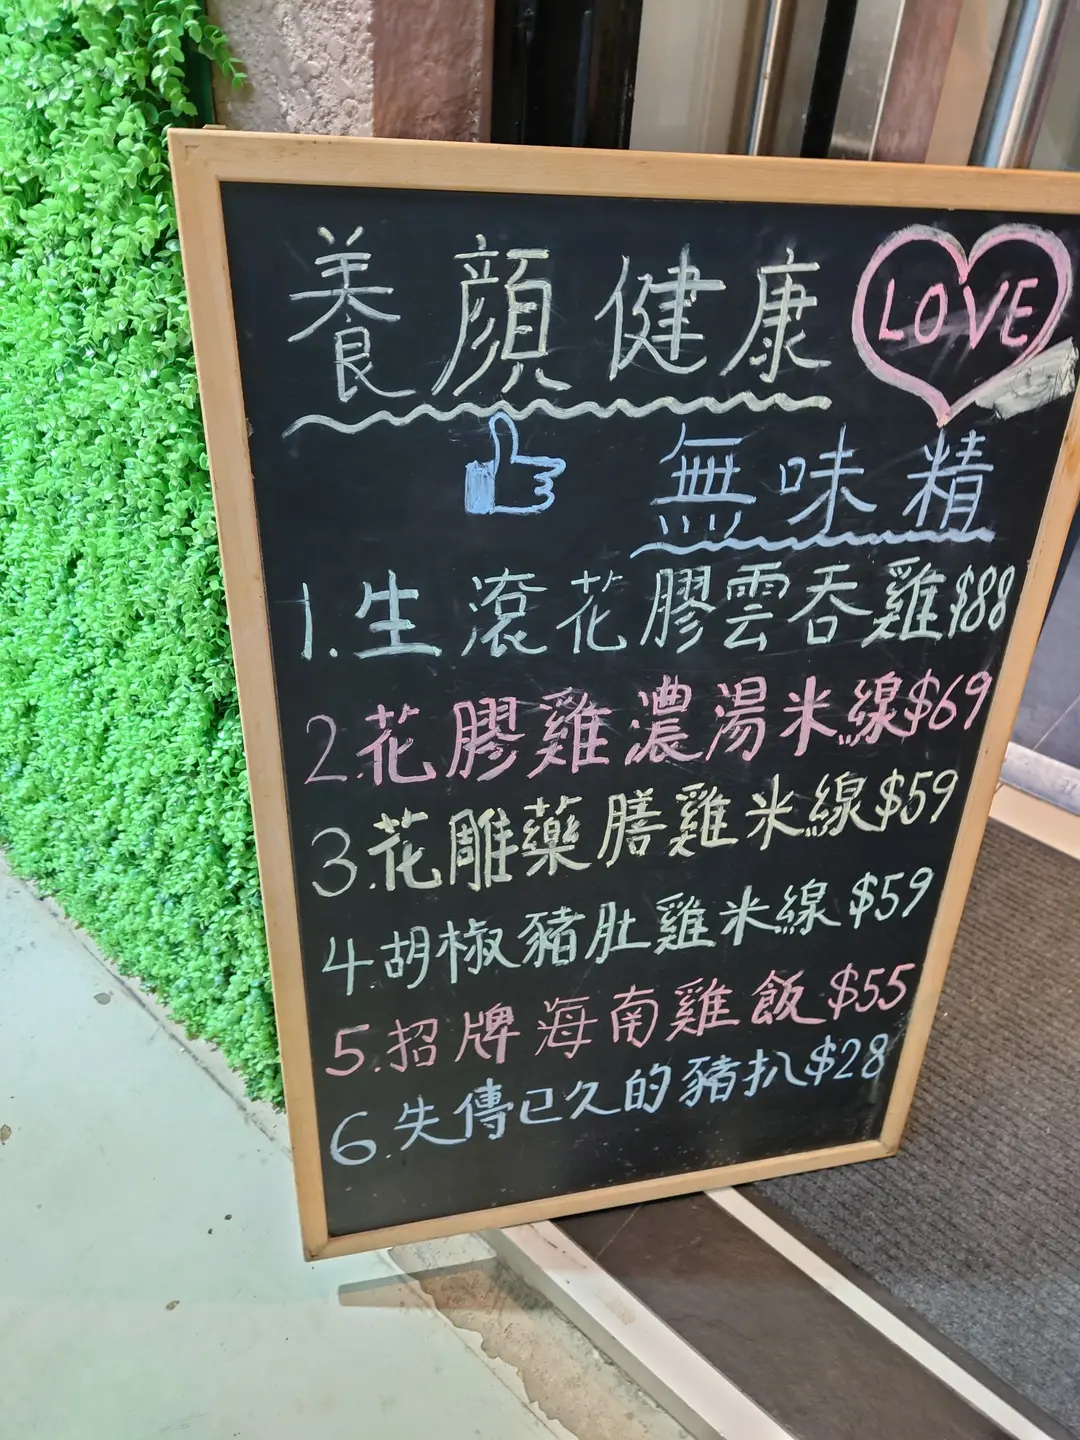 養顏健康 LOVE
無味精
1.生滾花膠雲吞雞$88
2.花膠雞濃湯米線$69
3.花雕藥膳雞米線$59
4.胡椒豬肚雞米線$59
5.招牌海南雞飯$55
6.失傳已久的豬扒$28